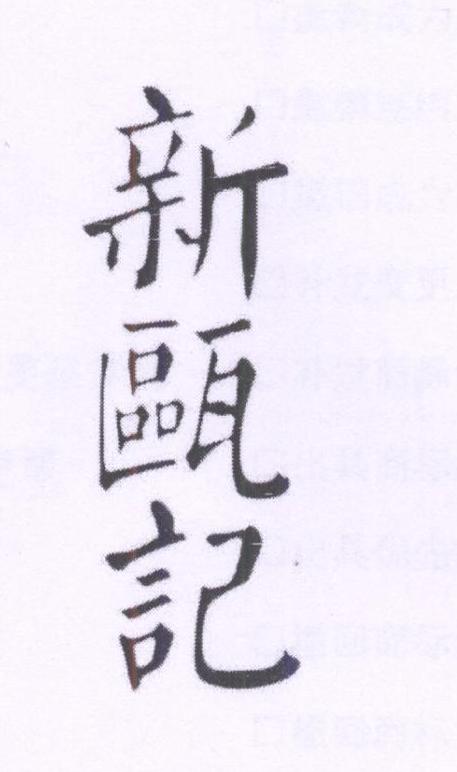 新甌記